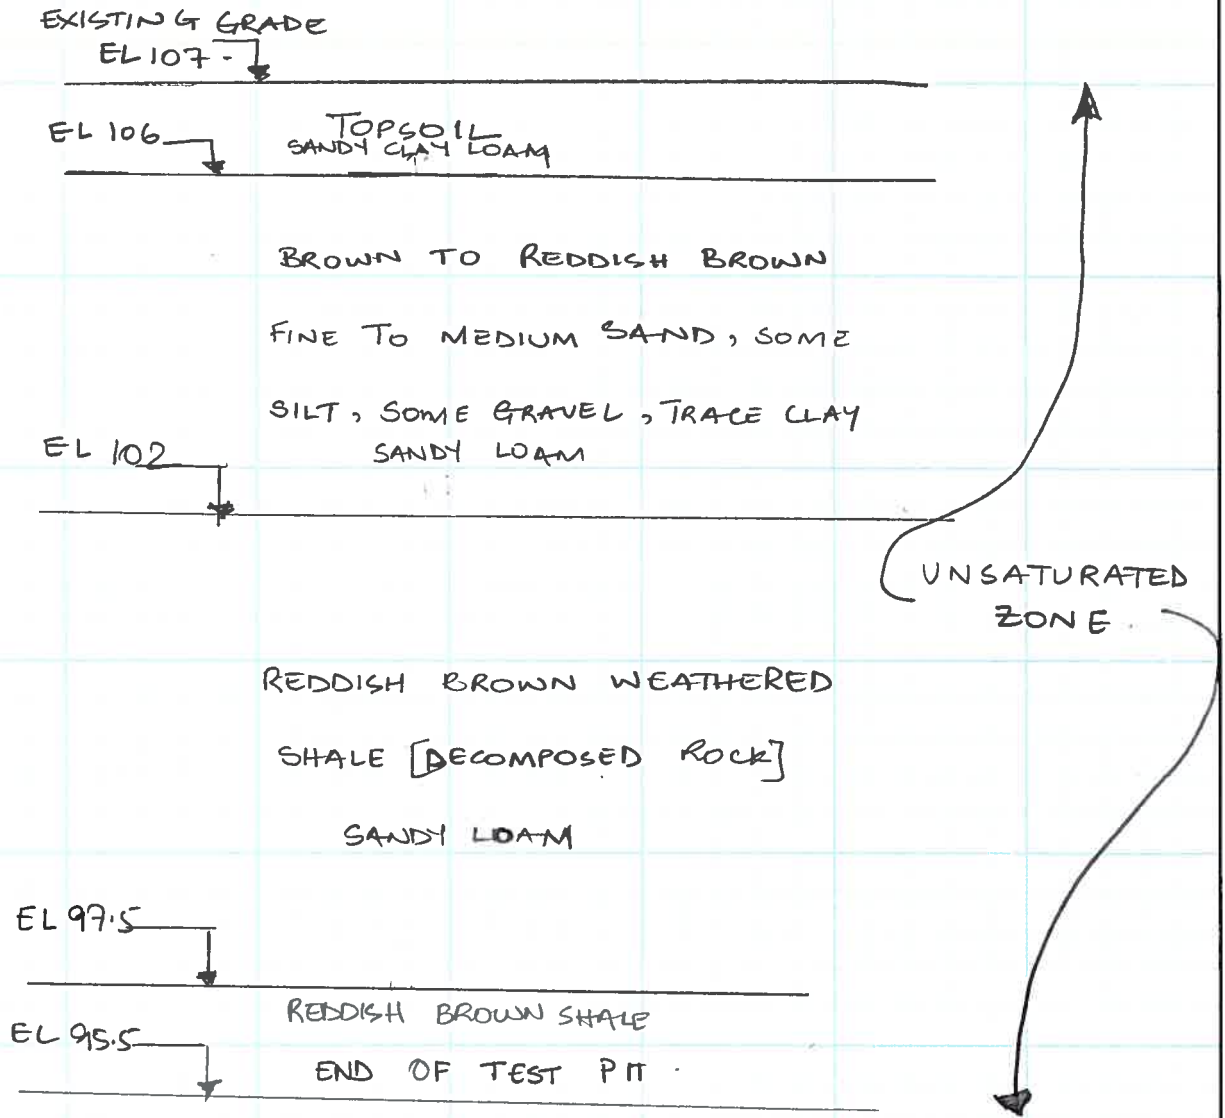 EXISTING GRADE
EL 107 -
EL 106
TOPSOIL
SANDY CLAY LOAM
BROWN TO REDDISH BROWN
FINE TO MEDIUM SAND, SOME
SILT, SOME GRAVEL, TRACE CLAY
EL 102
SANDY LOAM
UNSATURATED
ZONE
REDDISH BROWN WEATHERED
SHALE [DECOMPOSED ROCK]
SANDY LOAM
EL 97.5
REDDISH BROWN SHALE
EL 95.5
END OF TEST PIT.